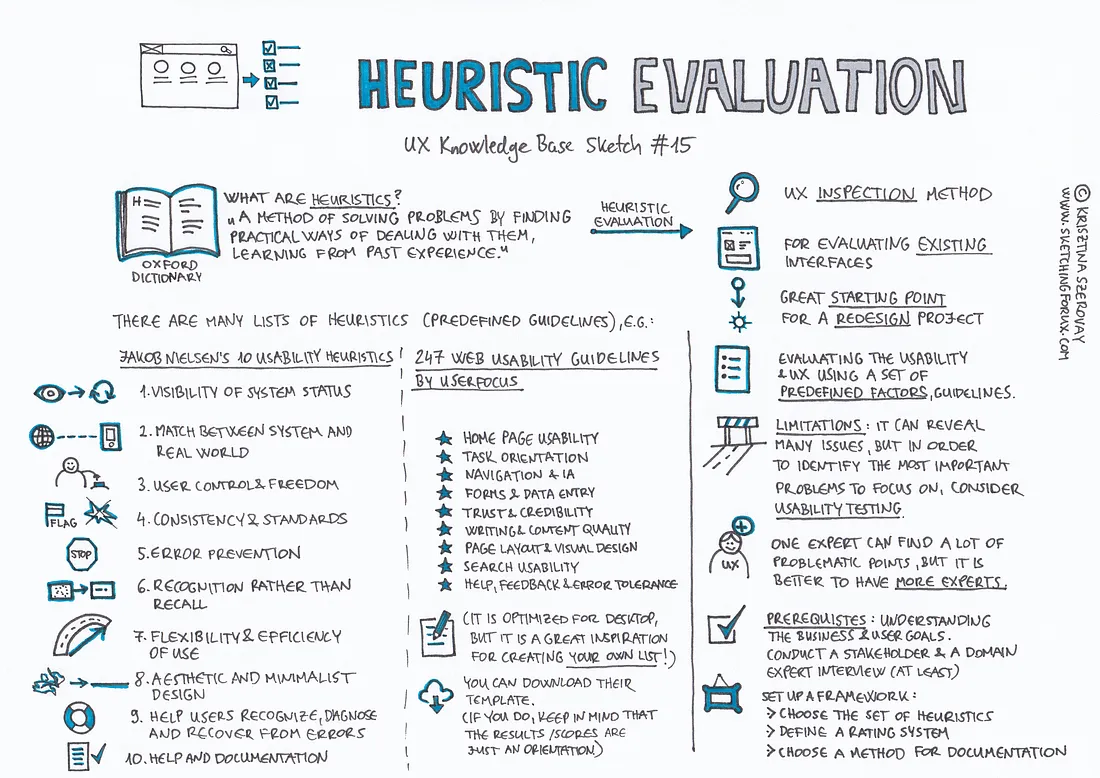 HEURISTIC EVALUATION
UX Knowledge Base Sketch #15
H
OXFORD
DICTIONARY
WHAT ARE HEURISTICS?
„A METHOD OF SOLVING PROBLEMS BY FINDING
PRACTICAL WAYS OF DEALING WITH THEM,
LEARNING FROM PAST EXPERIENCE."
HEURISTIC
EVALUATION
THERE ARE MANY LISTS OF HEURISTICS (PREDEFINED GUIDELINES), E.G.:
JAKOB NIELSEN'S 10 USABILITY HEURISTICS
1. VISIBILITY OF SYSTEM STATUS
2. MATCH BETWEEN SYSTEM AND
REAL WORLD
3. USER CONTROL & FREEDOM
FLAG
4. CONSISTENCY & STANDARDS
STOP
5. ERROR PREVENTION
6. RECOGNITION RATHER THAN
RECALL
7. FLEXIBILITY & EFFICIENCY
OF USE
8. AESTHETIC AND MINIMALIST
DESIGN
9. HELP USERS RECOGNIZE, DIAGNOSE
AND RECOVER FROM ERRORS
10. HELP AND DOCUMENTATION
247 WEB USABILITY GUIDELINES
BY USERFOCUS
HOME PAGE USABILITY
TASK ORIENTATION
NAVIGATION & IA
FORMS & DATA ENTRY
TRUST & CREDIBILITY
WRITING & CONTENT QUALITY
PAGE LAYOUT & VISUAL DESIGN
SEARCH USABILITY
HELP, FEEDBACK & ERROR TOLERANCE
(IT IS OPTIMIZED FOR DESKTOP,
BUT IT IS A GREAT INSPIRATION
FOR CREATING YOUR OWN LIST!)
YOU CAN DOWNLOAD THEIR
TEMPLATE.
(IF YOU DO, KEEP IN MIND THAT
THE RESULTS/SCORES ARE
JUST AN ORIENTATION)
UX INSPECTION METHOD
FOR EVALUATING EXISTING
INTERFACES
GREAT STARTING POINT
FOR A REDESIGN PROJECT
EVALUATING THE USABILITY
& UX USING A SET OF
PREDEFINED FACTORS, GUIDELINES.
LIMITATIONS: IT CAN REVEAL
MANY ISSUES, BUT IN ORDER
TO IDENTIFY THE MOST IMPORTANT
PROBLEMS TO FOCUS ON, CONSIDER
USABILITY TESTING.
UX
ONE EXPERT CAN FIND A LOT OF
PROBLEMATIC POINTS, BUT IT IS
BETTER TO HAVE MORE EXPERTS.
PREREQUISTES: UNDERSTANDING
THE BUSINESS & USER GOALS.
CONDUCT A STAKEHOLDER & A DOMAIN
EXPERT INTERVIEW (AT LEAST)
SET UP A FRAMEWORK:
> CHOOSE THE SET OF HEURISTICS
> DEFINE A RATING SYSTEM
> CHOOSE A METHOD FOR DOCUMENTATION
© KRISZTINA SZEROVAY
WWW.SKETCHINGFORUX.COM